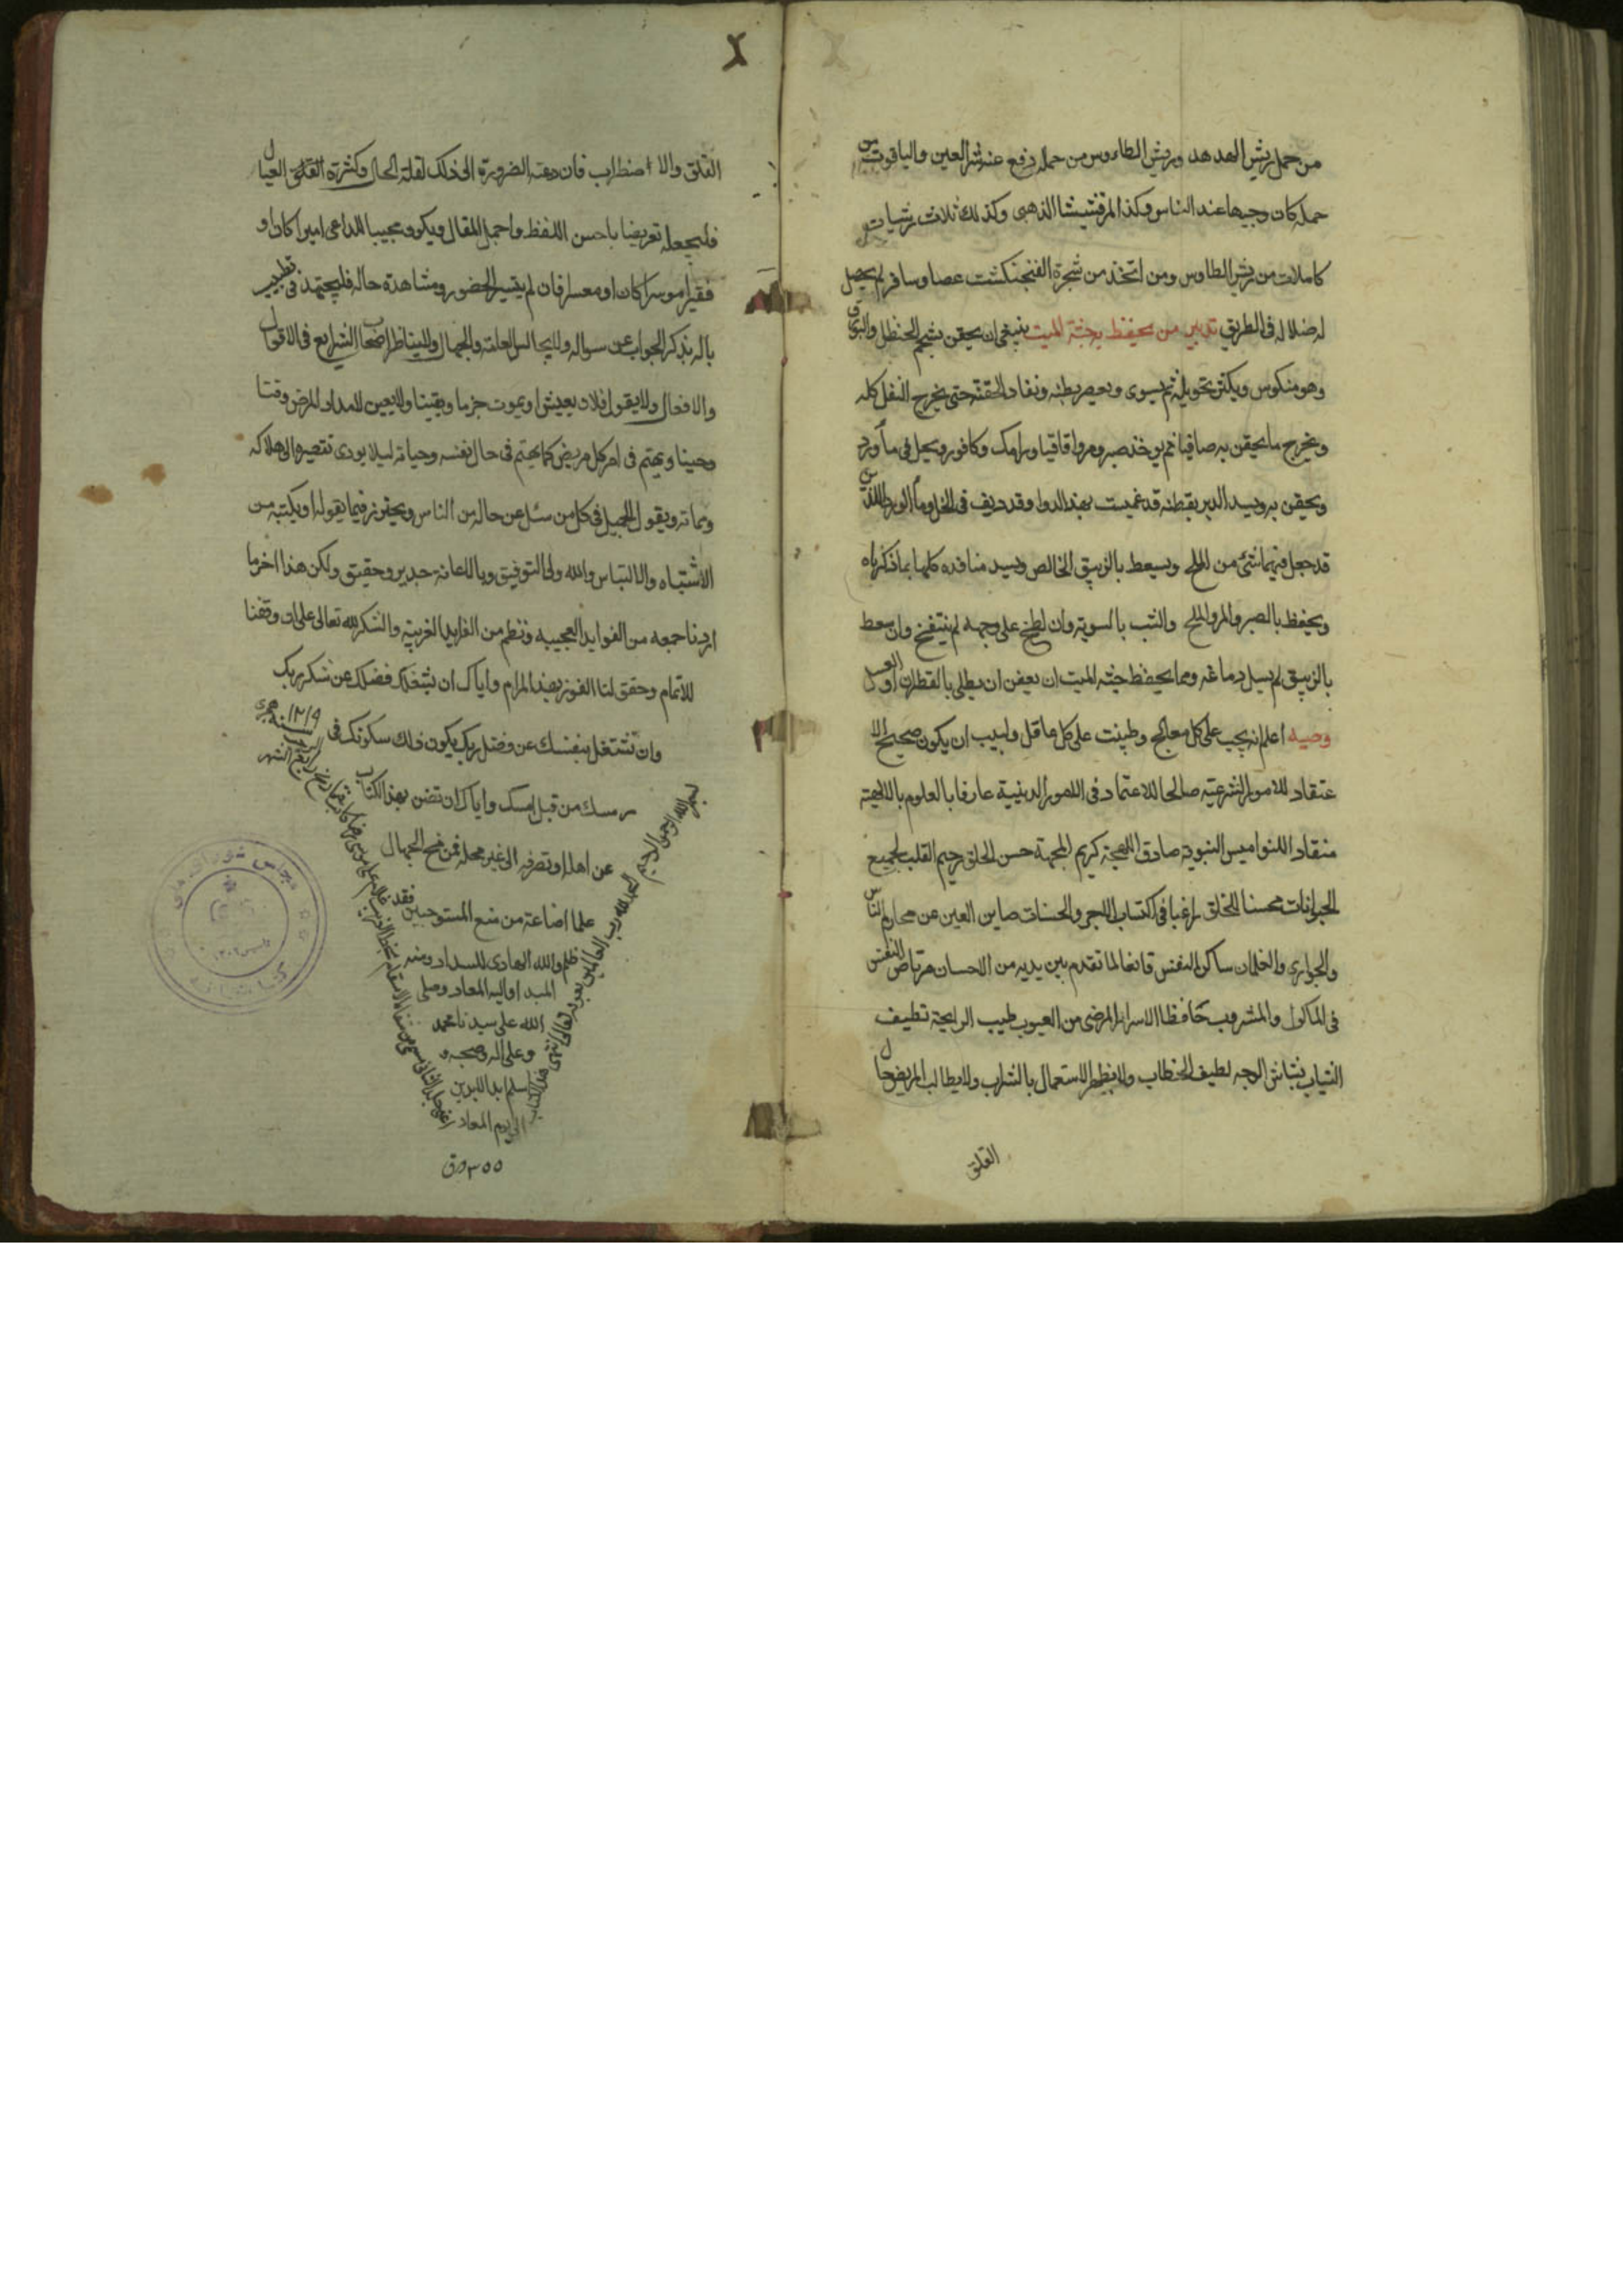 من حمل ريش الهدهد وريش الطاوس من حمله دفع عنه شر العين والياقوت من
حمله كان وجيها عند الناس وكذا المرقشيشا الذهبى وكذلك ثلاث ريشات
كاملات من ريش الطاوس ومن اتخذ من شجرة الفنجنكشت عصا وسافر لم يحصل
له ضلاله فى الطريق تدبير من يحفظ به جثة الميت ينبغى ان يحقن بشحم الحنظل والبورق
وهو منكوس ويكثر تحويله ثم يسوى ويعصر بطنه وتعاد الحقنة حتى يخرج الثفل كله
ويخرج ما يحقن به صافيا ثم يوخذ صبر ومر واقاقيا ورامك وكافور ويحل فى ماء ورد
ويحقن به ويسد الدبر بقطنه قد غمست بهذا الدوا وقد ديف فى الخل وماء الورد اللذين
قد جعل فيهما شئ من الملح ويسعط بالزيبق الخالص ويسد منافذه كلها بما ذكرناه
ويحفظ بالصبر والمر والملح والشب بالسويه وان لطخ على وجهه لم ينتفخ وان سعط
بالزيبق لم يسيل دماغه ومما يحفظ جثه الميت ان يعفن ان يطلى بالقطران او العسل
وصيه اعلم انه يجب على كل معالج وطبيب على كل عاقل ولبيب ان يكون صحيح الا
عتقاد للامور الشرعيه صالحا للاعتماد فى الامور الدينية عارفا بالعلوم بالالاهية
منقاد اللنواميس النبويه صادق اللهجة كريم المهجة حسن الخلق رحيم القلب لجميع
الحيوانات محسنا للخلق راغبا فى اكتساب الاجر والحسنات صاين العين عن محارم الناس
والجوارى والغلمان ساكن النفس قانعا لما تقدم بين يديه من الاحسان مرتاض النفس
فى الماكول والمشروب حافظا الاسرار المرضى من العيوب طيب الرايحة نظيف
الثياب بشاش الوجه لطيف الخطاب ولا يظهر الاستعمال بالشراب ولا يطالب المريض حال
القلق
القلق والاضطراب فان دعته الضرورة الى ذلك لقلة الحال وكثرة القلق العيال
فليجعله تعريضا باحسن اللفظ واجمل المقال ويكون مجيبا للداعى اميرا كان او
فقيرا موسرا كان او معسرا فان لم يتيسر الحضور ومشاهدة حاله فليجتهد فى تطييب
باله بذكر الجواب عن سواله ولا يجالس العامة والجهال ولا يناظر اصحاب الشرايع فى الاقوال
والافعال ولا يقول فلان يعيش او يموت جزما ويقينا ولا يعين لامداد المرض وقتا
وحينا ويهتم فى امر كل مريض كما يهتم فى حال نفسه وحياته ليلا يودى تقصيره الى هلاكه
ومماته ويقول الجميل فى كل من سئل عن حاله من الناس ويحترز فيما يقوله او يكتبه من
الاشتباه والالتباس والله ولى التوفيق وبالاعانة جدير وحقيق وليكن هذا اخر ما
اردنا جمعه من الفوايد العجيبه ونظم من الفرايد الغريبة والشكر لله تعالى على ان وفقنا
للاتمام وحقق لنا الفوز بهذا المرام واياك ان يشغلك فضلك عن شكر ربك
وان تشتغل بنفسك عن فضل ربك يكون ذلك سكونك فى
رمسك من قبل امسك واياك ان تضن بهذا الكتاب
عن اهله او تصرفه الى غير محله فمن منح الجهال
علما اضاعه من منع المستوجبين فقد
ظلم والله الهادى للسداد ومنه
المبدا واليه المعاد وصلى
الله على سيدنا محمد
وعلى اله وصحبه و
سلم ابد الابدين
الى يوم المعاد
بسم الله الرحمن الرحيم الحمد لله رب العالمين بعونه تعالى
سنه ١٢١٩ هجرى
٣٥٥ ورق